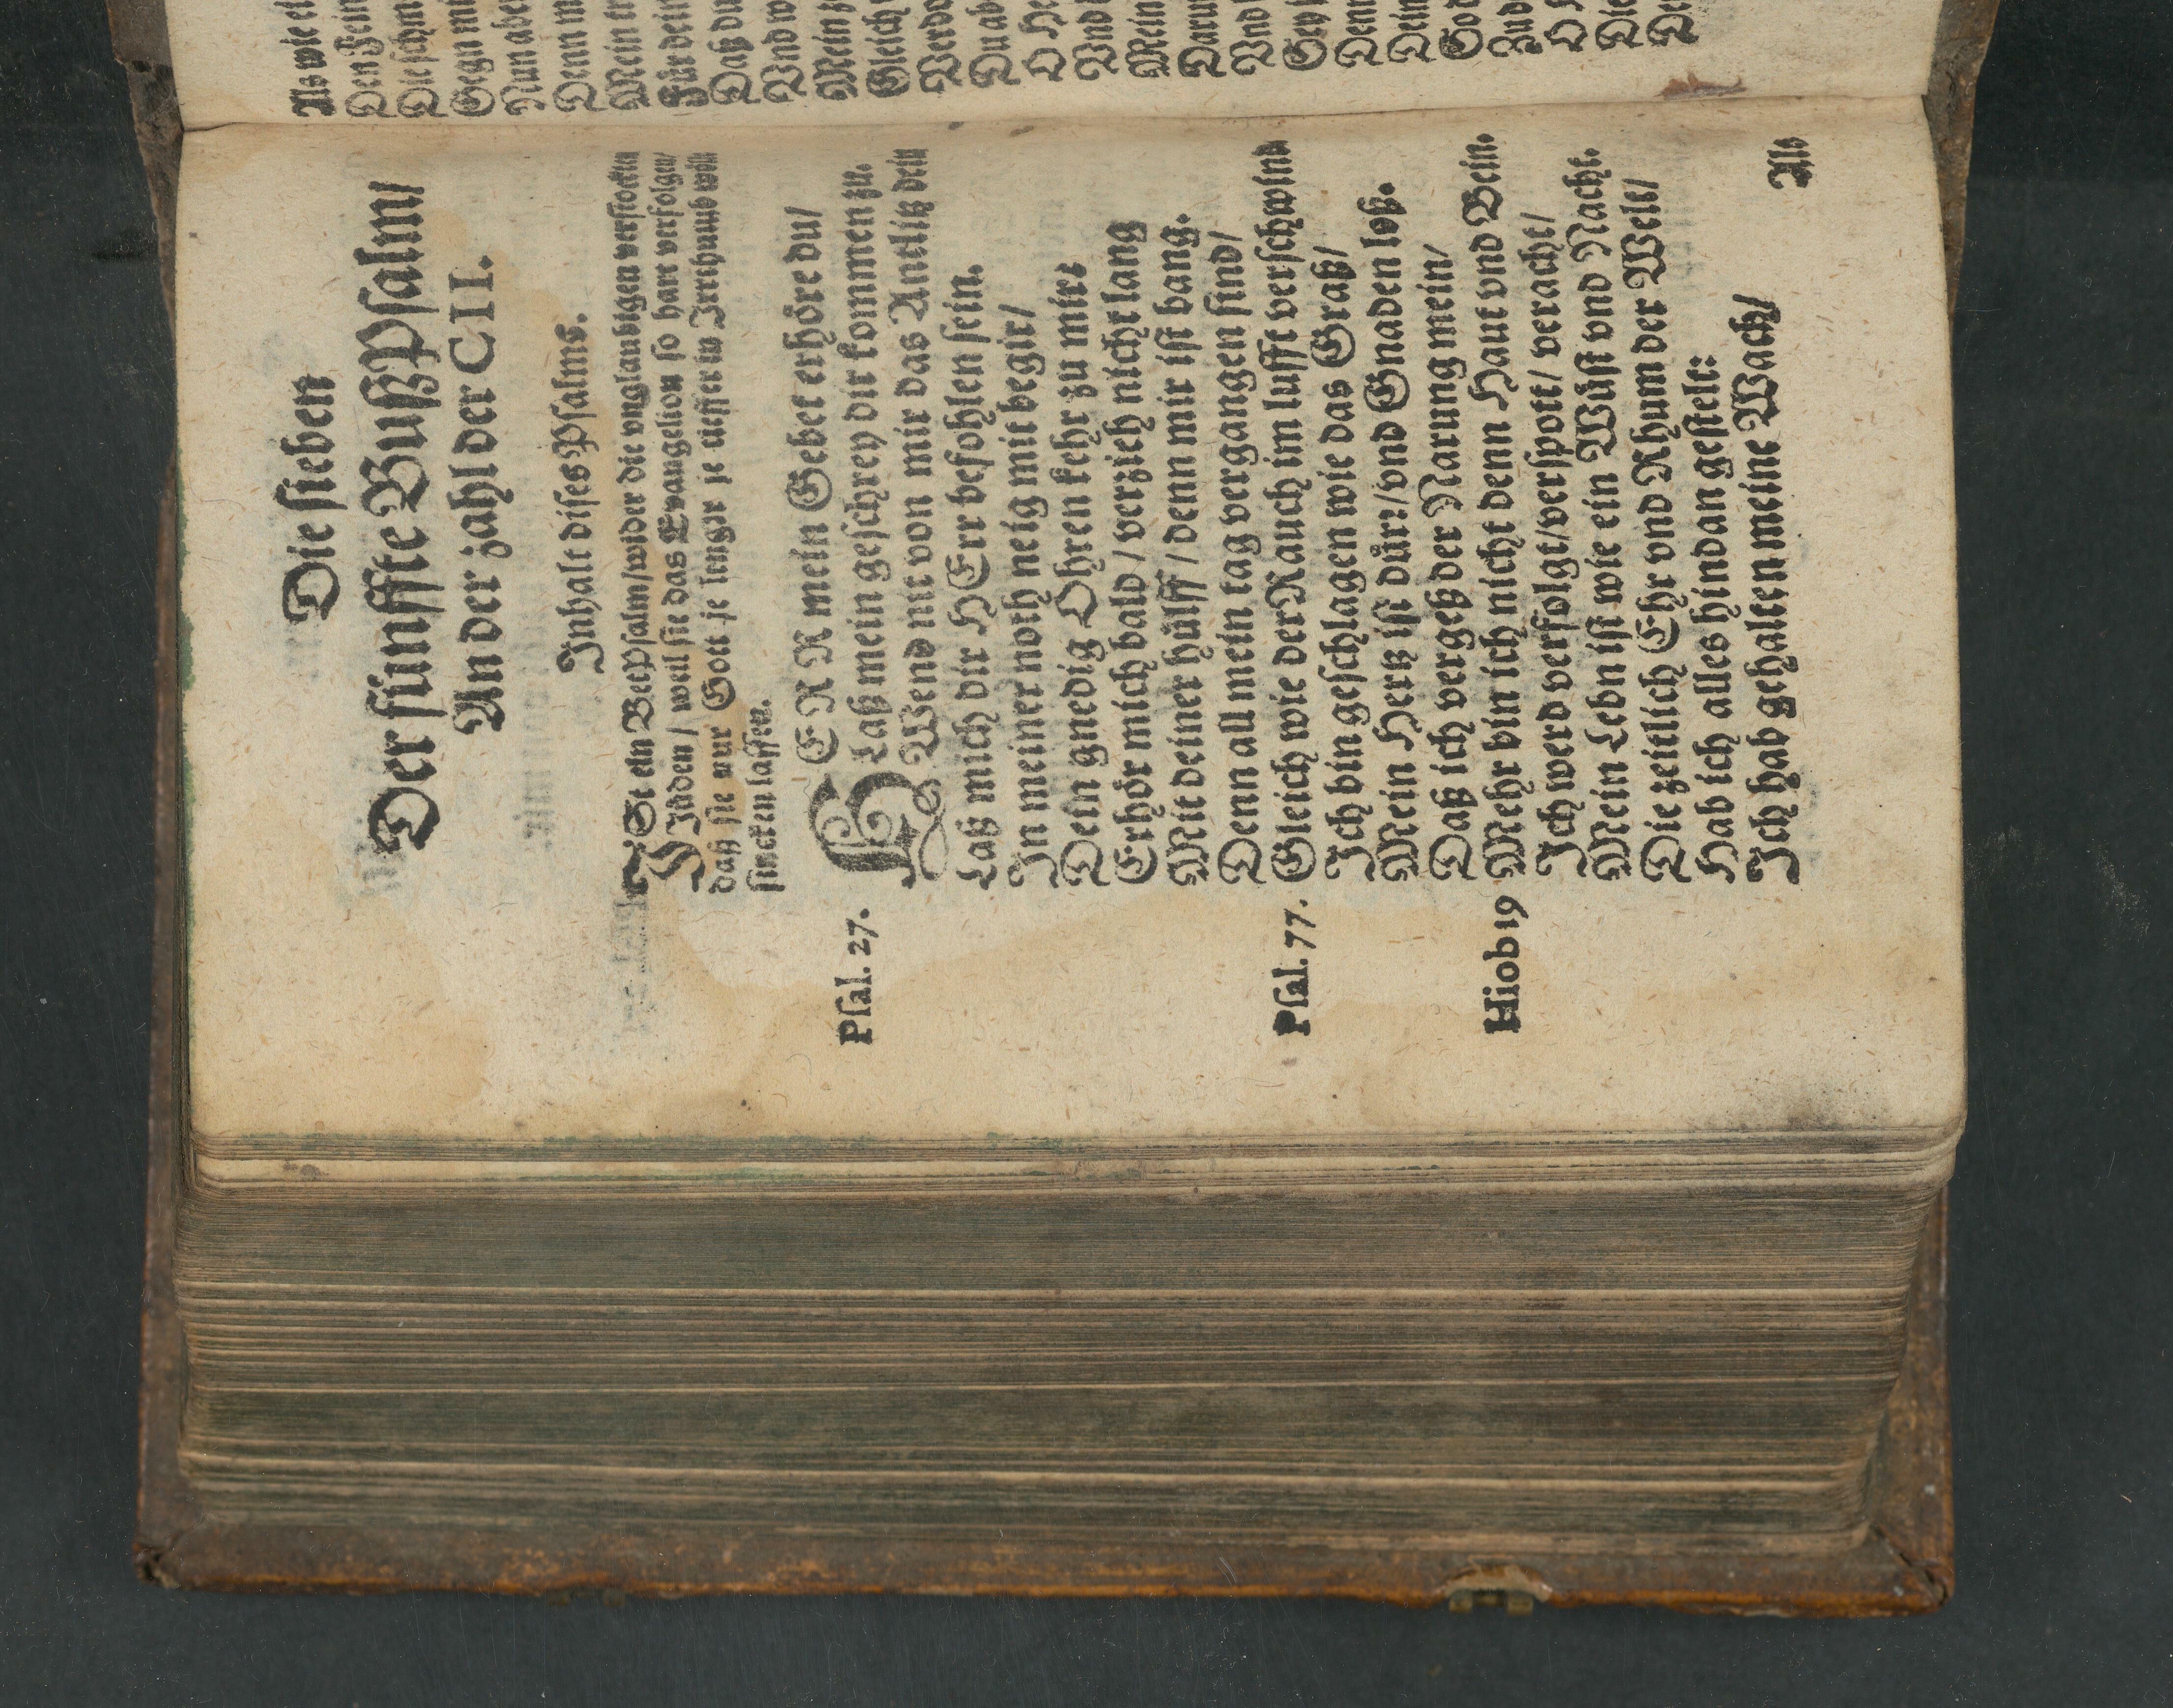 Die sieben
Der fünffte BußPsalm/
An der zahl der CII.
Inhalt dises Psalms.
ISt ein BetPsalm/wider die vnglaubigen verstockten
Jüden / weil sie das Evangelion so hart verfolgen/
daß sie nur Gott je lenger je tieffer in Irrthumb wöll
sincken lassen.
Psal. 27.
HERR mein Gebet erhöre du/
Laß mein geschrey dir kommen zu.
Wend nit von mir das Antlitz dein
Laß mich dir HErr befohlen sein.
In meiner noth neig mit begir/
Dein gnedig Ohren kehr zu mir:
Erhör mich bald/ verzieh nicht lang
Mit deiner hülff/ denn mir ist bang.
Denn all mein tag vergangen sind/
Psal. 77.
Gleich wie der Rauch im lufft verschwind
Ich bin geschlagen wie das Graß/
Mein Hertz ist dürr/ vnd Gnaden loß.
Daß ich vergeß der Narung mein/
Hiob 19
Mehr bin ich nicht denn Haut vnd Bein.
Ich werd verfolgt/verspott/ veracht/
Mein Lebn ist wie ein Wüst vnd Nacht.
Die zeitlich Ehr vnd Rhum der Welt/
Hab ich alles hindan gestelt:
Ich hab gehalten meine Wach/
Als
Als wie
Den
Die
Gegn
Nun aber
Denn
Mein
Für dein
Daß du
Vnd
Mein
Gleich
Du
O
Vnd
Mein
Vnd
Denn
Dein